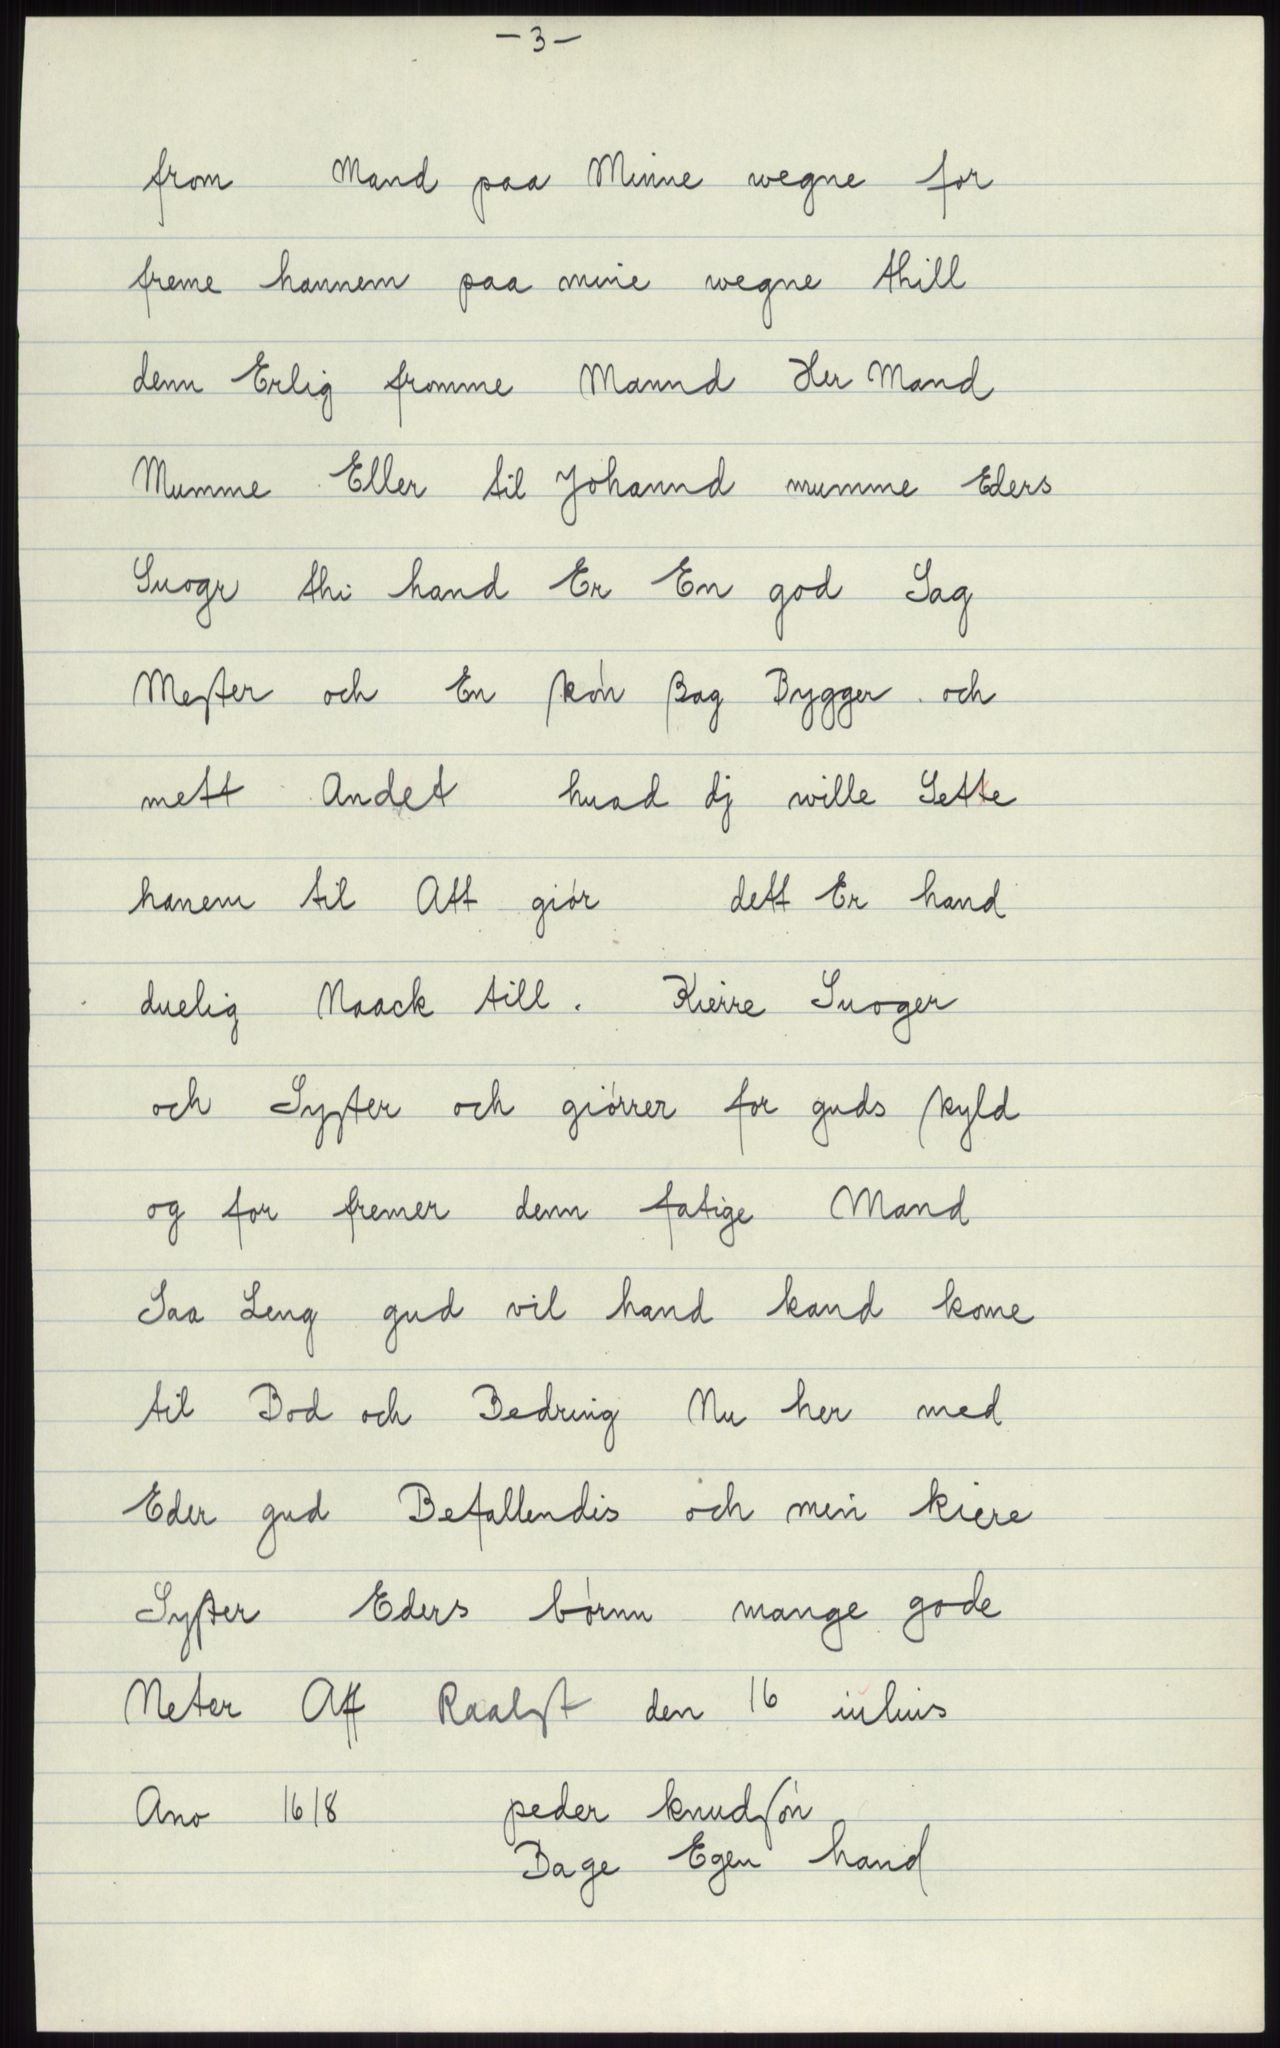 -3-
from Mand paa Minne wegne for
freme hannem paa mine wegne thill
denn Erlig fromme Mannd Her Mand
Mumme Eller til Johannd mumme Eders
Suogr thi hand Er En god Sag
Mester och En skón Bag Bygger och
mett Andet huad dj wille Sette
hanem til Att giór dett Er hand
duelig Naack till. Kierre Suoger
och Syster och giórrer for guds skyld
og for fremer denn fatige Mand
Saa Leng gud vil hand kand kome
til Bod och Bedring Nu her med
Eder gud Befallendis och min kiere
Syster Eders bórnn mange gode
Neter Aff Raalyst den 16 iulius
Ano 1618 peder knudsón
Bage Egen hand